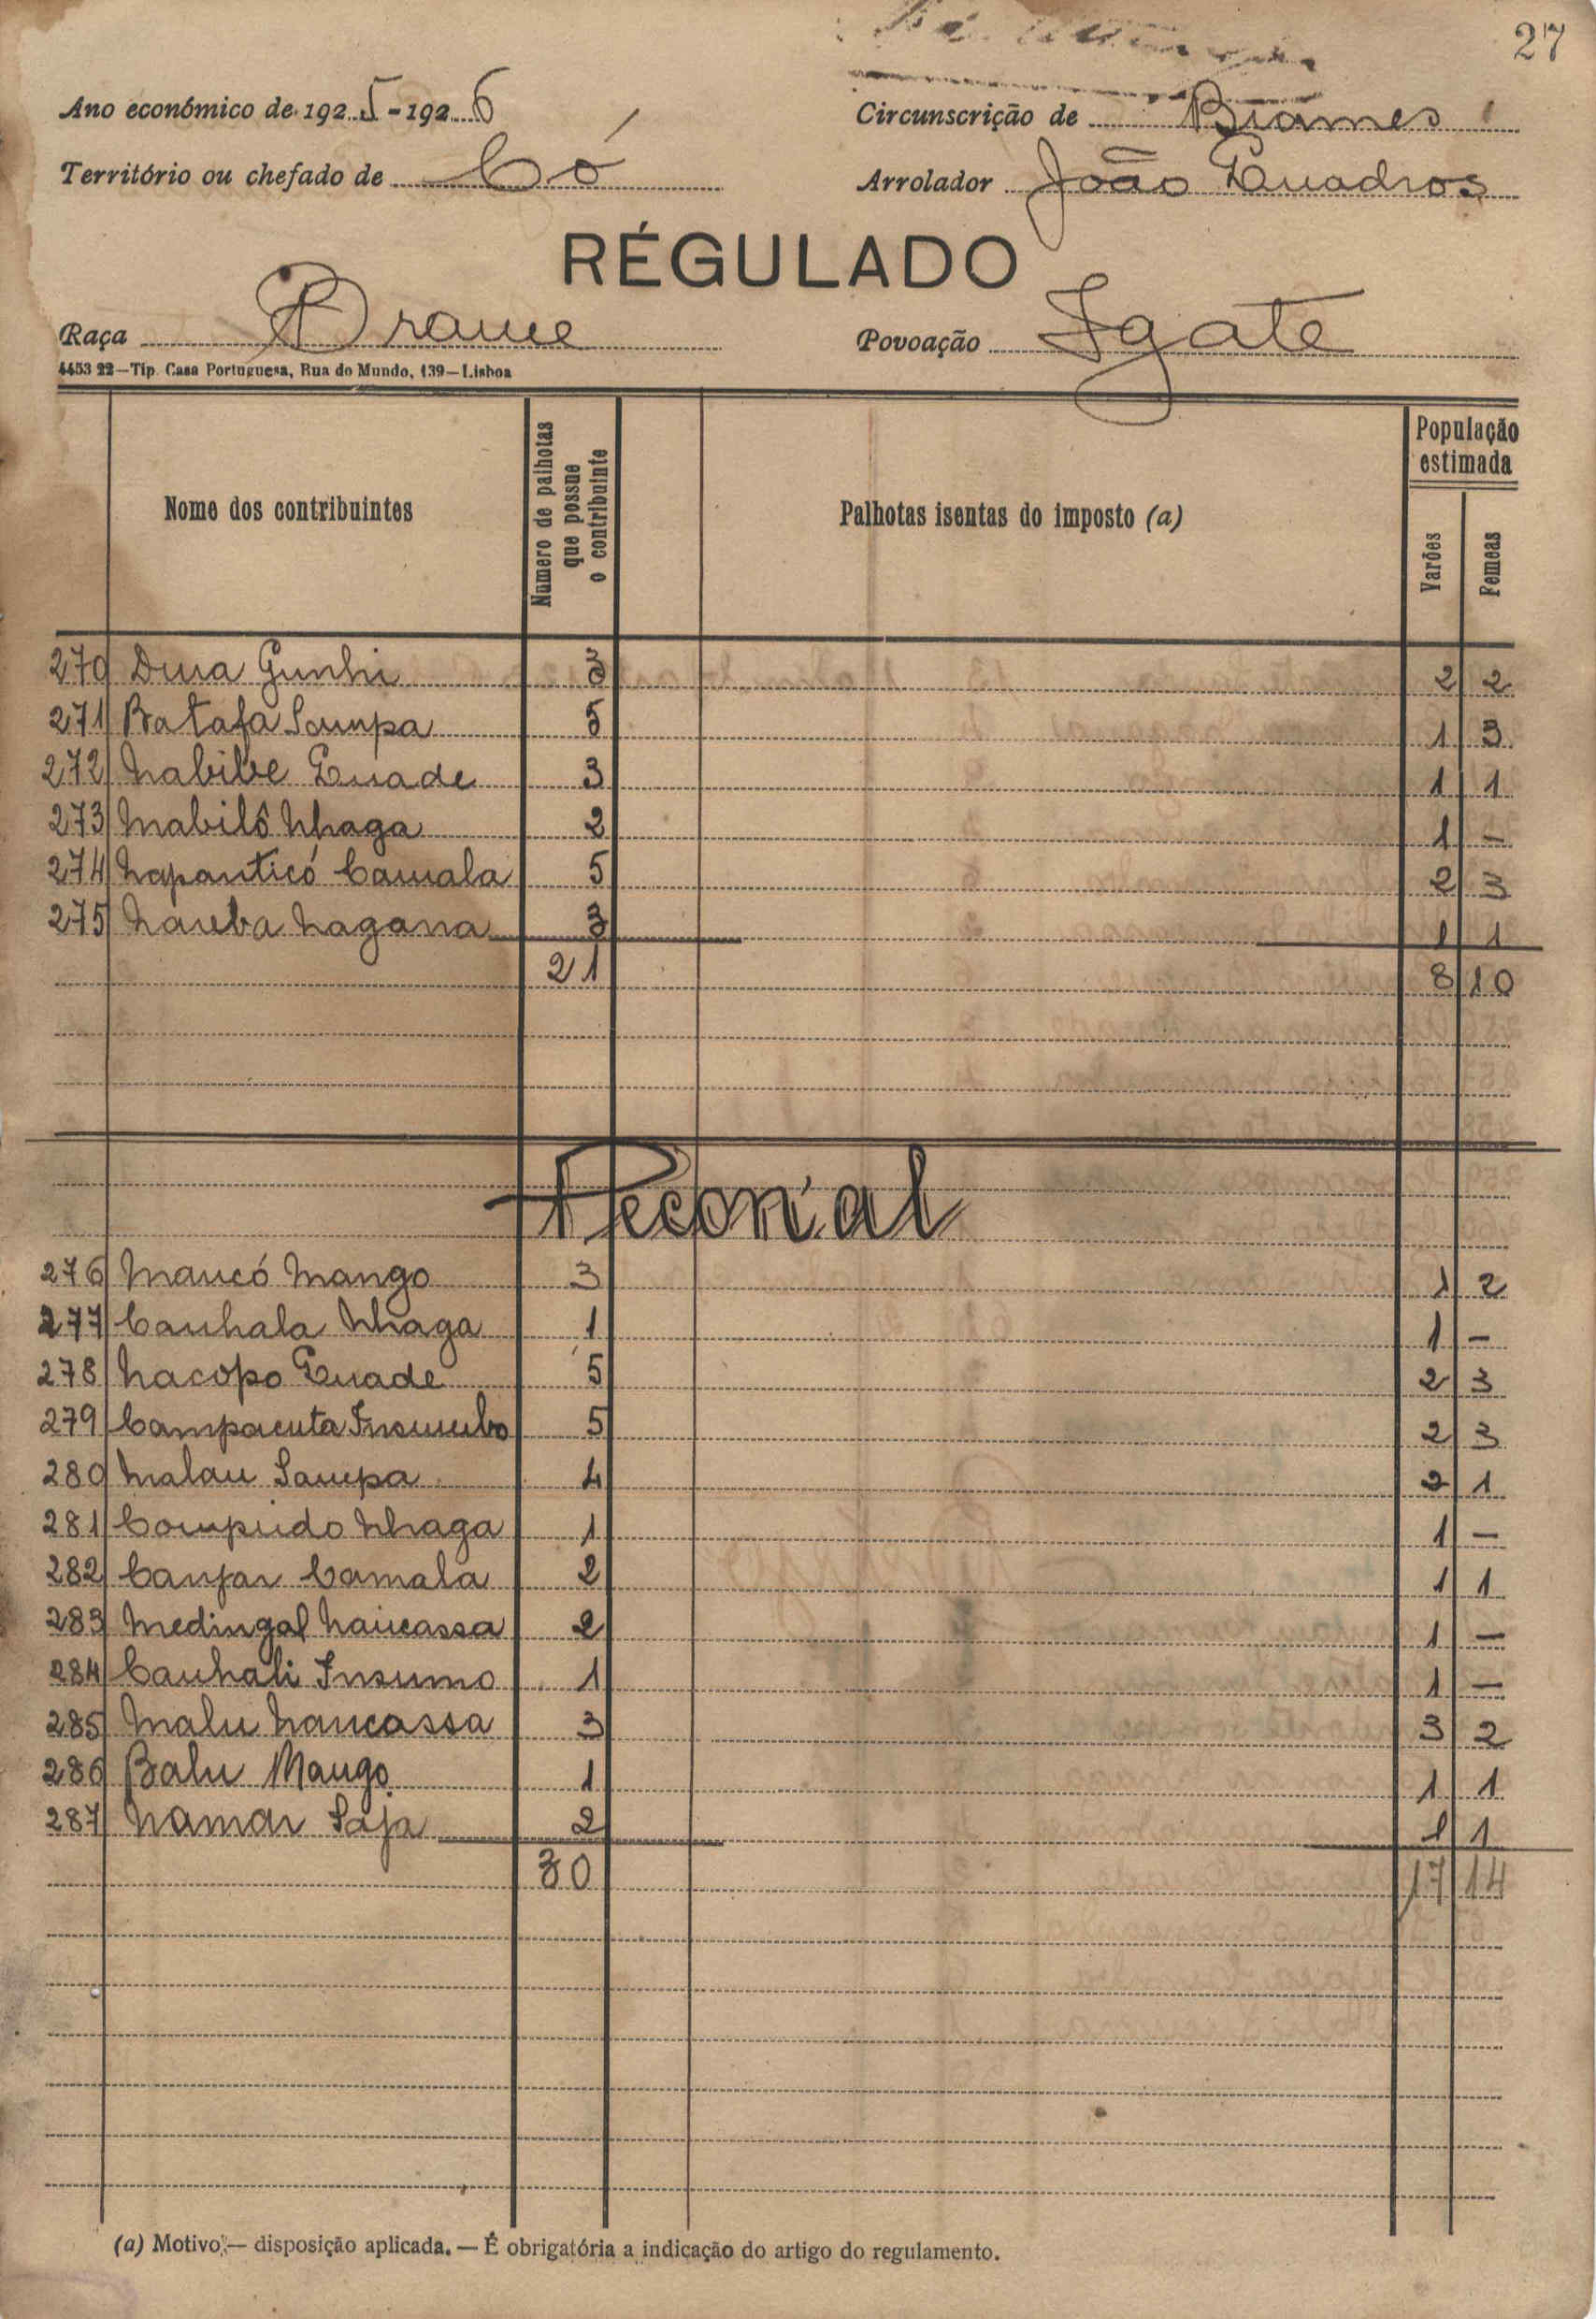 27
Ano económico de 1925-1926
Circunscrição de Biames
Território ou chefado de Có
Arrolador João Quadros
RÉGULADO
Raça Brame
Povoação Igate
4453 22—Tip. Casa Portuguesa, Rua do Mundo, 139—Lisboa
Nome dos contribuintes
Número de palhotas que possue o contribuinte
Palhotas isentas do imposto (a)
População estimada
Varões
Femeas
270 Dura Gunhi 3 2 2
271 Batafa Sampa 5 1 3
272 Nabibe Quade 3 1 1
273 Mabilô Nhaga 2 1 -
274 Napanticó Camala 5 2 3
275 Nauba Nagana 3 1 1
21 8 10
Peconal
276 Maucó Mango 3 1 2
277 Canhala Nhaga 1 1 -
278 Nacopo Quade 5 2 3
279 Campacuta Insumbo 5 2 3
280 Malau Sampa 4 2 1
281 Compudo Nhaga 1 1 -
282 Canfar Camala 2 1 1
283 Medingal Naucassa 2 1 -
284 Canhali Insumo 1 1 -
285 Malu Naucassa 3 3 2
286 Balu Mango 1 1 1
287 Namar Saja 2 1 1
30 17 14
(a) Motivo — disposição aplicada. — É obrigatória a indicação do artigo do regulamento.